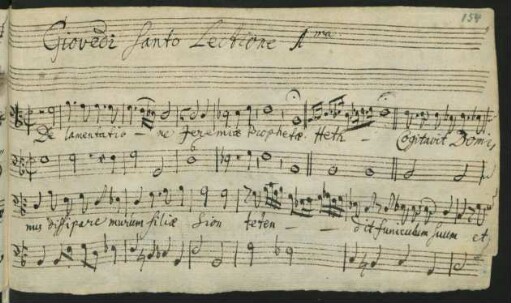 154
Giovedi Santo Lectione 1ma
De lamentatio - ne Jeremiæ Prophetæ. Heth - Cogitavit Domi
nus dissipare murum filiæ Sion teten - - dit funiculum suum et